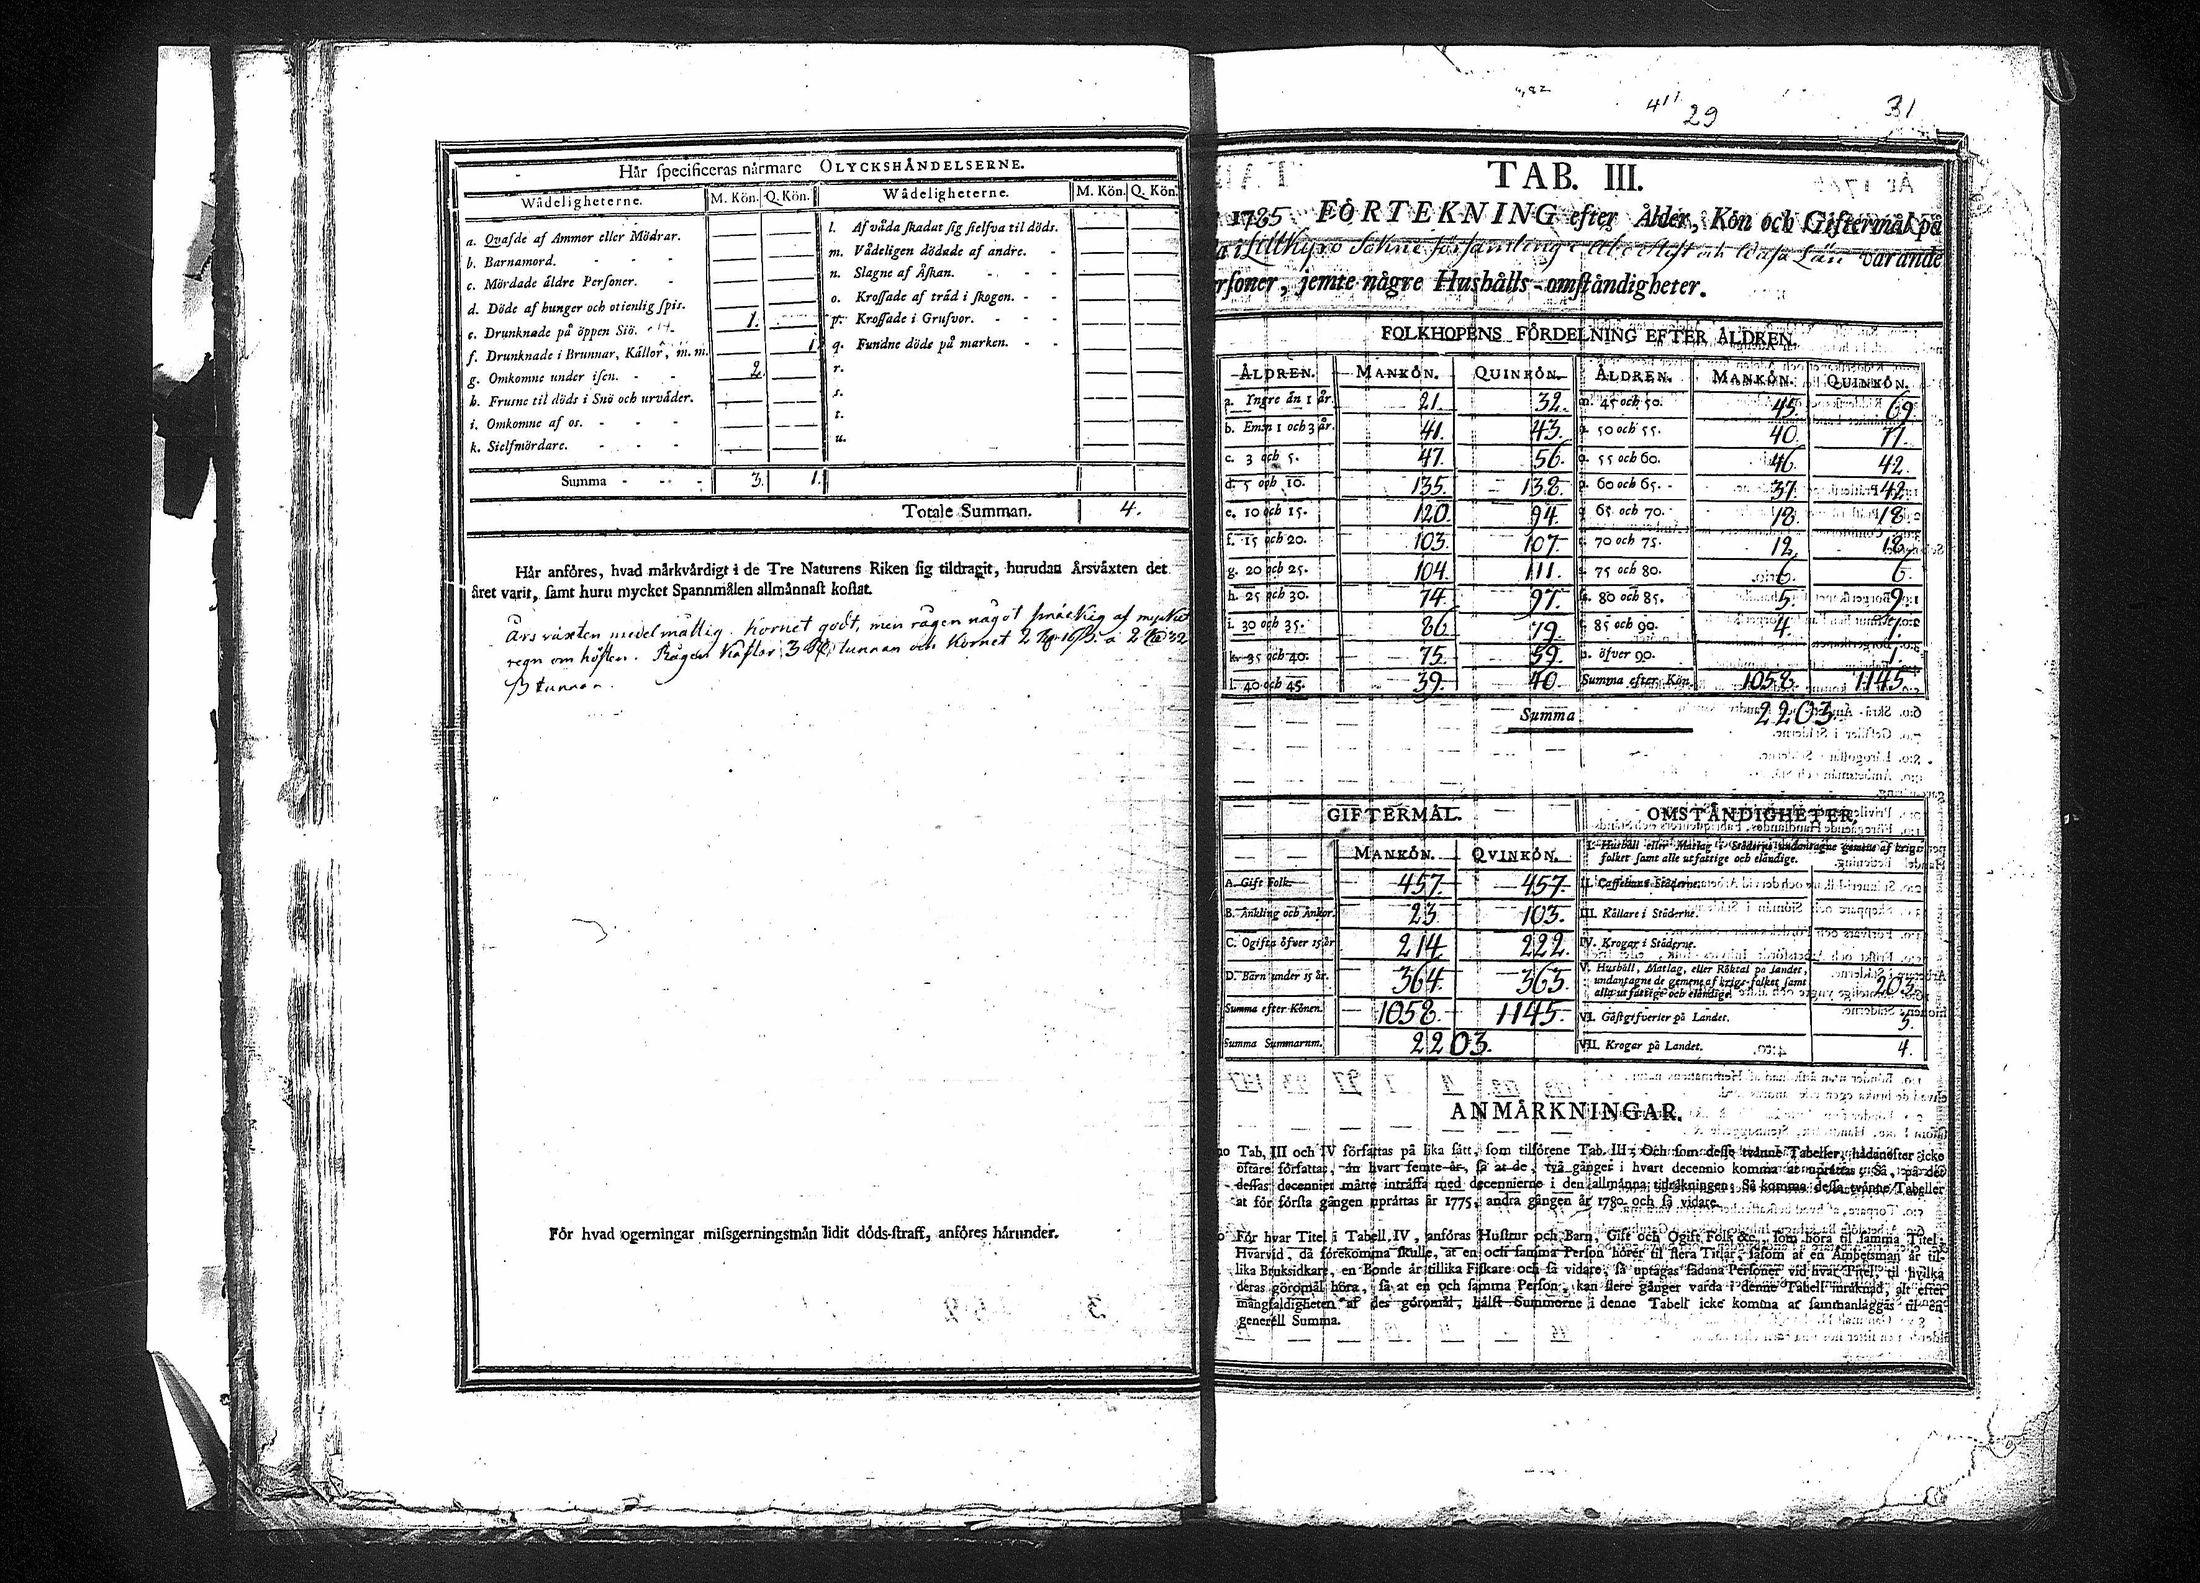 Hår specificeras nårmare OLYCKSHÅNDELSERNE.
Wådeligheterne. M. Kön. Q. Kön. Wådeligheterne. M. Kön. Q. Kön.
a. Qvafde af Ammor eller Mödrar.
b. Barnamord. - - -
c. Mördade äldre Personer. -
d. Döde af hunger och otienlig spis.
e. Drunknade på öppen Siö. 1.
f. Drunknade i Brunnar, Källor, m. m. 1
g. Omkomne under isen. - - 2.
h. Frusne til döds i Snö och urväder.
i. Omkomne af os. - - -
k. Sielfmördare. - - -
l. Af våda skadat sig sielfva til döds.
m. Vådeligen dödade af andre. -
n. Slagne af Åskan. - - -
o. Krossade af träd i skogen. - -
p. Krossade i Grufvor. - - -
q. Fundne döde på marken. - -
r.
s.
t.
u.
Summa - - - 3. 1.
Totale Summan. 4.
Hår anföres, hvad mårkvårdigt i de Tre Naturens Riken sig tildragit, hurudan Årsvåxten det
året varit, samt huru mycket Spannmålen allmånnast kostat.
Års växten medelmåttig. Kornet godt, men rågen något smäckig af mycket
regn om hösten. Rågen kåstar 3 tunnan och Kornet 2
tunnan.
För hvad ogerningar missgerningsmån lidit döds-straff, anföres hårunder.
411 29 31
TAB. III.
1785 FÖRTEKNING efter Ålder, Kön och Giftermål på
Lillkyro Sokne församling Åbo Stift och Wasa Län varande
rsoner, jemte någre Hushålls-omständigheter.
FOLKHOPENS FÖRDELNING EFTER ÅLDREN.
ÅLDREN. MANKÖN. QUINKÖN. ÅLDREN. MANKÖN. QUINKÖN.
a. Yngre än 1 år. 21. 32. m. 45 och 50. 45. 69.
b. Emn 1 och 3 år. 41. 43. 50 och 55. 40. 77.
c. 3 och 5. 47. 56. 55 och 60. 46. 42.
d. 5 och 10. 135. 138. 60 och 65. - 37. 42.
e. 10 och 15. 120. 94. 65 och 70. 18. 18.
f. 15 och 20. 103. 107. 70 och 75. 12. 18.
g. 20 och 25. 104. 111. 75 och 80. 6. 6.
h. 25 och 30. 74. 97. 80 och 85. 5. 9.
i. 30 och 35. 86. 79. 85 och 90. 4. 7.
k. 35 och 40. 75. 59. u. öfver 90. 1.
l. 40 och 45. 39. 40. Summa efter Kön. 1058. 1145.
Summa 2203.
GIFTERMÅL. OMSTÅNDIGHETER.
MANKÖN. QVINKÖN.
A. Gift Folk. 457. 457.
B. Änkling och Änkor. 23. 103.
C. Ogifta öfver 15 år 214. 222.
D. Barn under 15 år. 364. 363.
Summa efter Könen. 1058. 1145.
Summa Summarum. 2203.
I. Hushåll eller Matlag i Städerne undantagne gemene af krigs-
folket samt alle utfattige och eländige.
II. Caffehus i Städerne.
III. Källare i Städerne.
IV. Krogar i Städerne.
V. Hushåll, Matlag, eller Röktal på landet,
undantagne de gemene af krigs-folket samt
alle utfattige och eländige. 203.
VI. Gästgifverier på Landet. 3.
VII. Krogar på Landet. 4.
ANMÅRKNINGAR.
Tab, III och IV författas på lika sått, som tilförene Tab. III; Och som desse tvånne Tabeller, hådanefter icke
oftare författas, ån hvart femte år, så at de, två gånger i hvart decennio komma at upråttas; Så, på det
dessas decennier måtte intråffa med decennierne i den allmånna tidråkningen; Så komma dessa tvånne Tabeller
at för första gången upråttas år 1775, andra gången år 1780 och så vidare.
För hvar Titel i Tabell IV, anföras Hustrur och Barn, Gift och Ogift Folk &c., som höra til samma Titel;
Hvarvid, då förekomma skulle, at en och samma Person hörer til flera Titlar, såsom at en Åmbetsman år til-
lika Bruksidkare, en Bonde år tillika Fiskare och så vidare; så uptagas sådana Personer vid hvar Titel, til hvilka
deras göromål höra, så at en och samma Person, kan flere gånger varda i denne Tabell inråknad, alt efter
mångfaldigheten af des göromål, hålst Summorne i denne Tabell icke komma at sammanlåggas til en
generell Summa.